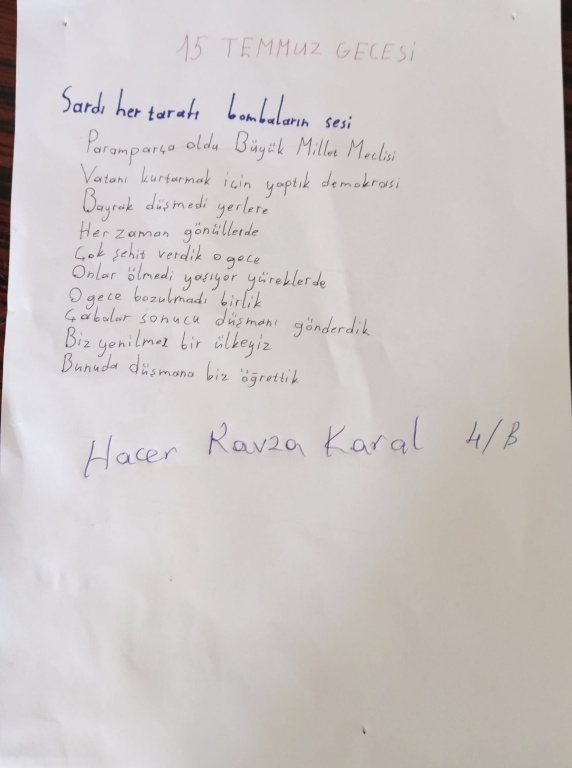 15 TEMMUZ GECESİ
Sardı her tarafı bombaların sesi
Paramparça oldu Büyük Millet Meclisi
Vatanı kurtarmak için yaptık demokrasi
Bayrak düşmedi yerlere
Her zaman gönüllerde
Çok şehit verdik o gece
Onlar ölmedi yaşıyor yüreklerde
O gece bozulmadı birlik
Çabalar sonucu düşmanı gönderdik
Biz yenilmez bir ülkeyiz
Bunuda düşmana biz öğrettik
Hacer Ravza Karal 4/B